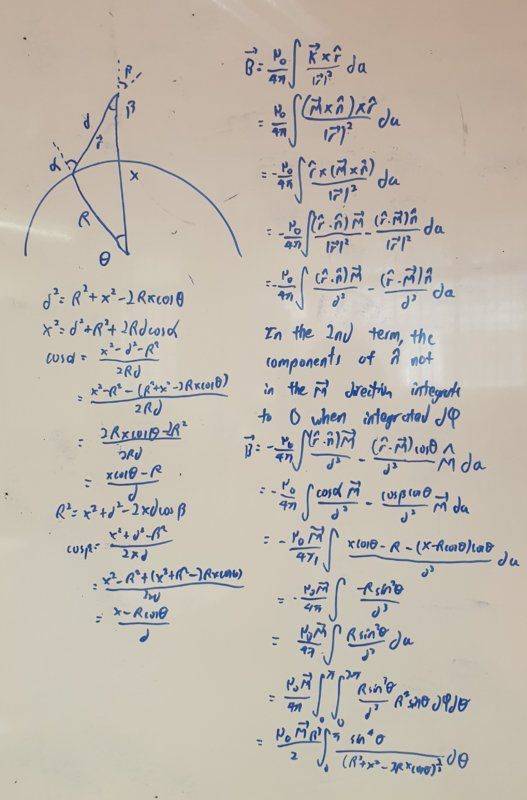 β
β
d
r⃗
α
x
R
θ
d² = R² + x² - 2Rxcosθ
x² = d² + R² + 2Rdcosα
cosα = (x² - d² - R²)/(2Rd)
= (x² - R² - (R² + x² - 2Rxcosθ))/(2Rd)
= (2Rxcosθ - 2R²)/(2Rd)
= (xcosθ - R)/d
R² = x² + d² - 2xdcosβ
cosβ = (x² + d² - R²)/(2xd)
= (x² - R² + (x² + R² - 2Rxcosθ))/(2xd)
= (x - Rcosθ)/d
B⃗ = μ₀/4π ∫ (K⃗ × r̂)/|r⃗|² da
= μ₀/4π ∫ ((M⃗ × n̂) × r̂)/|r⃗|² da
= -μ₀/4π ∫ (r̂ × (M⃗ × n̂))/|r⃗|² da
= -μ₀/4π ∫ ((r̂·n̂)M⃗)/|r⃗|² - ((r̂·M⃗)n̂)/|r⃗|² da
= -μ₀/4π ∫ ((r̂·n̂)M⃗)/d² - ((r̂·M⃗)n̂)/d² da
In the 2nd term, the
components of n̂ not
in the M⃗ direction integrate
to 0 when integrated dφ
B⃗ = -μ₀/4π ∫ ((r̂·n̂)M⃗)/d² - ((r̂·M⃗)cosθ)/d² M̂ da
= -μ₀/4π ∫ (cosα M⃗)/d² - (cosβcosθ)/d² M⃗ da
= -μ₀M⃗/4π ∫ (xcosθ - R - (x - Rcosθ)cosθ)/d³ da
= -μ₀M⃗/4π ∫ (-Rsin²θ)/d³
= μ₀M⃗/4π ∫ (Rsin²θ)/d³ da
= μ₀M⃗/4π ∫₀^π ∫₀^2π (Rsin²θ)/d³ R²sinθ dφdθ
= μ₀M⃗R³/2 ∫₀^π sin³θ/(R² + x² - 2Rxcosθ)^(3/2) dθ